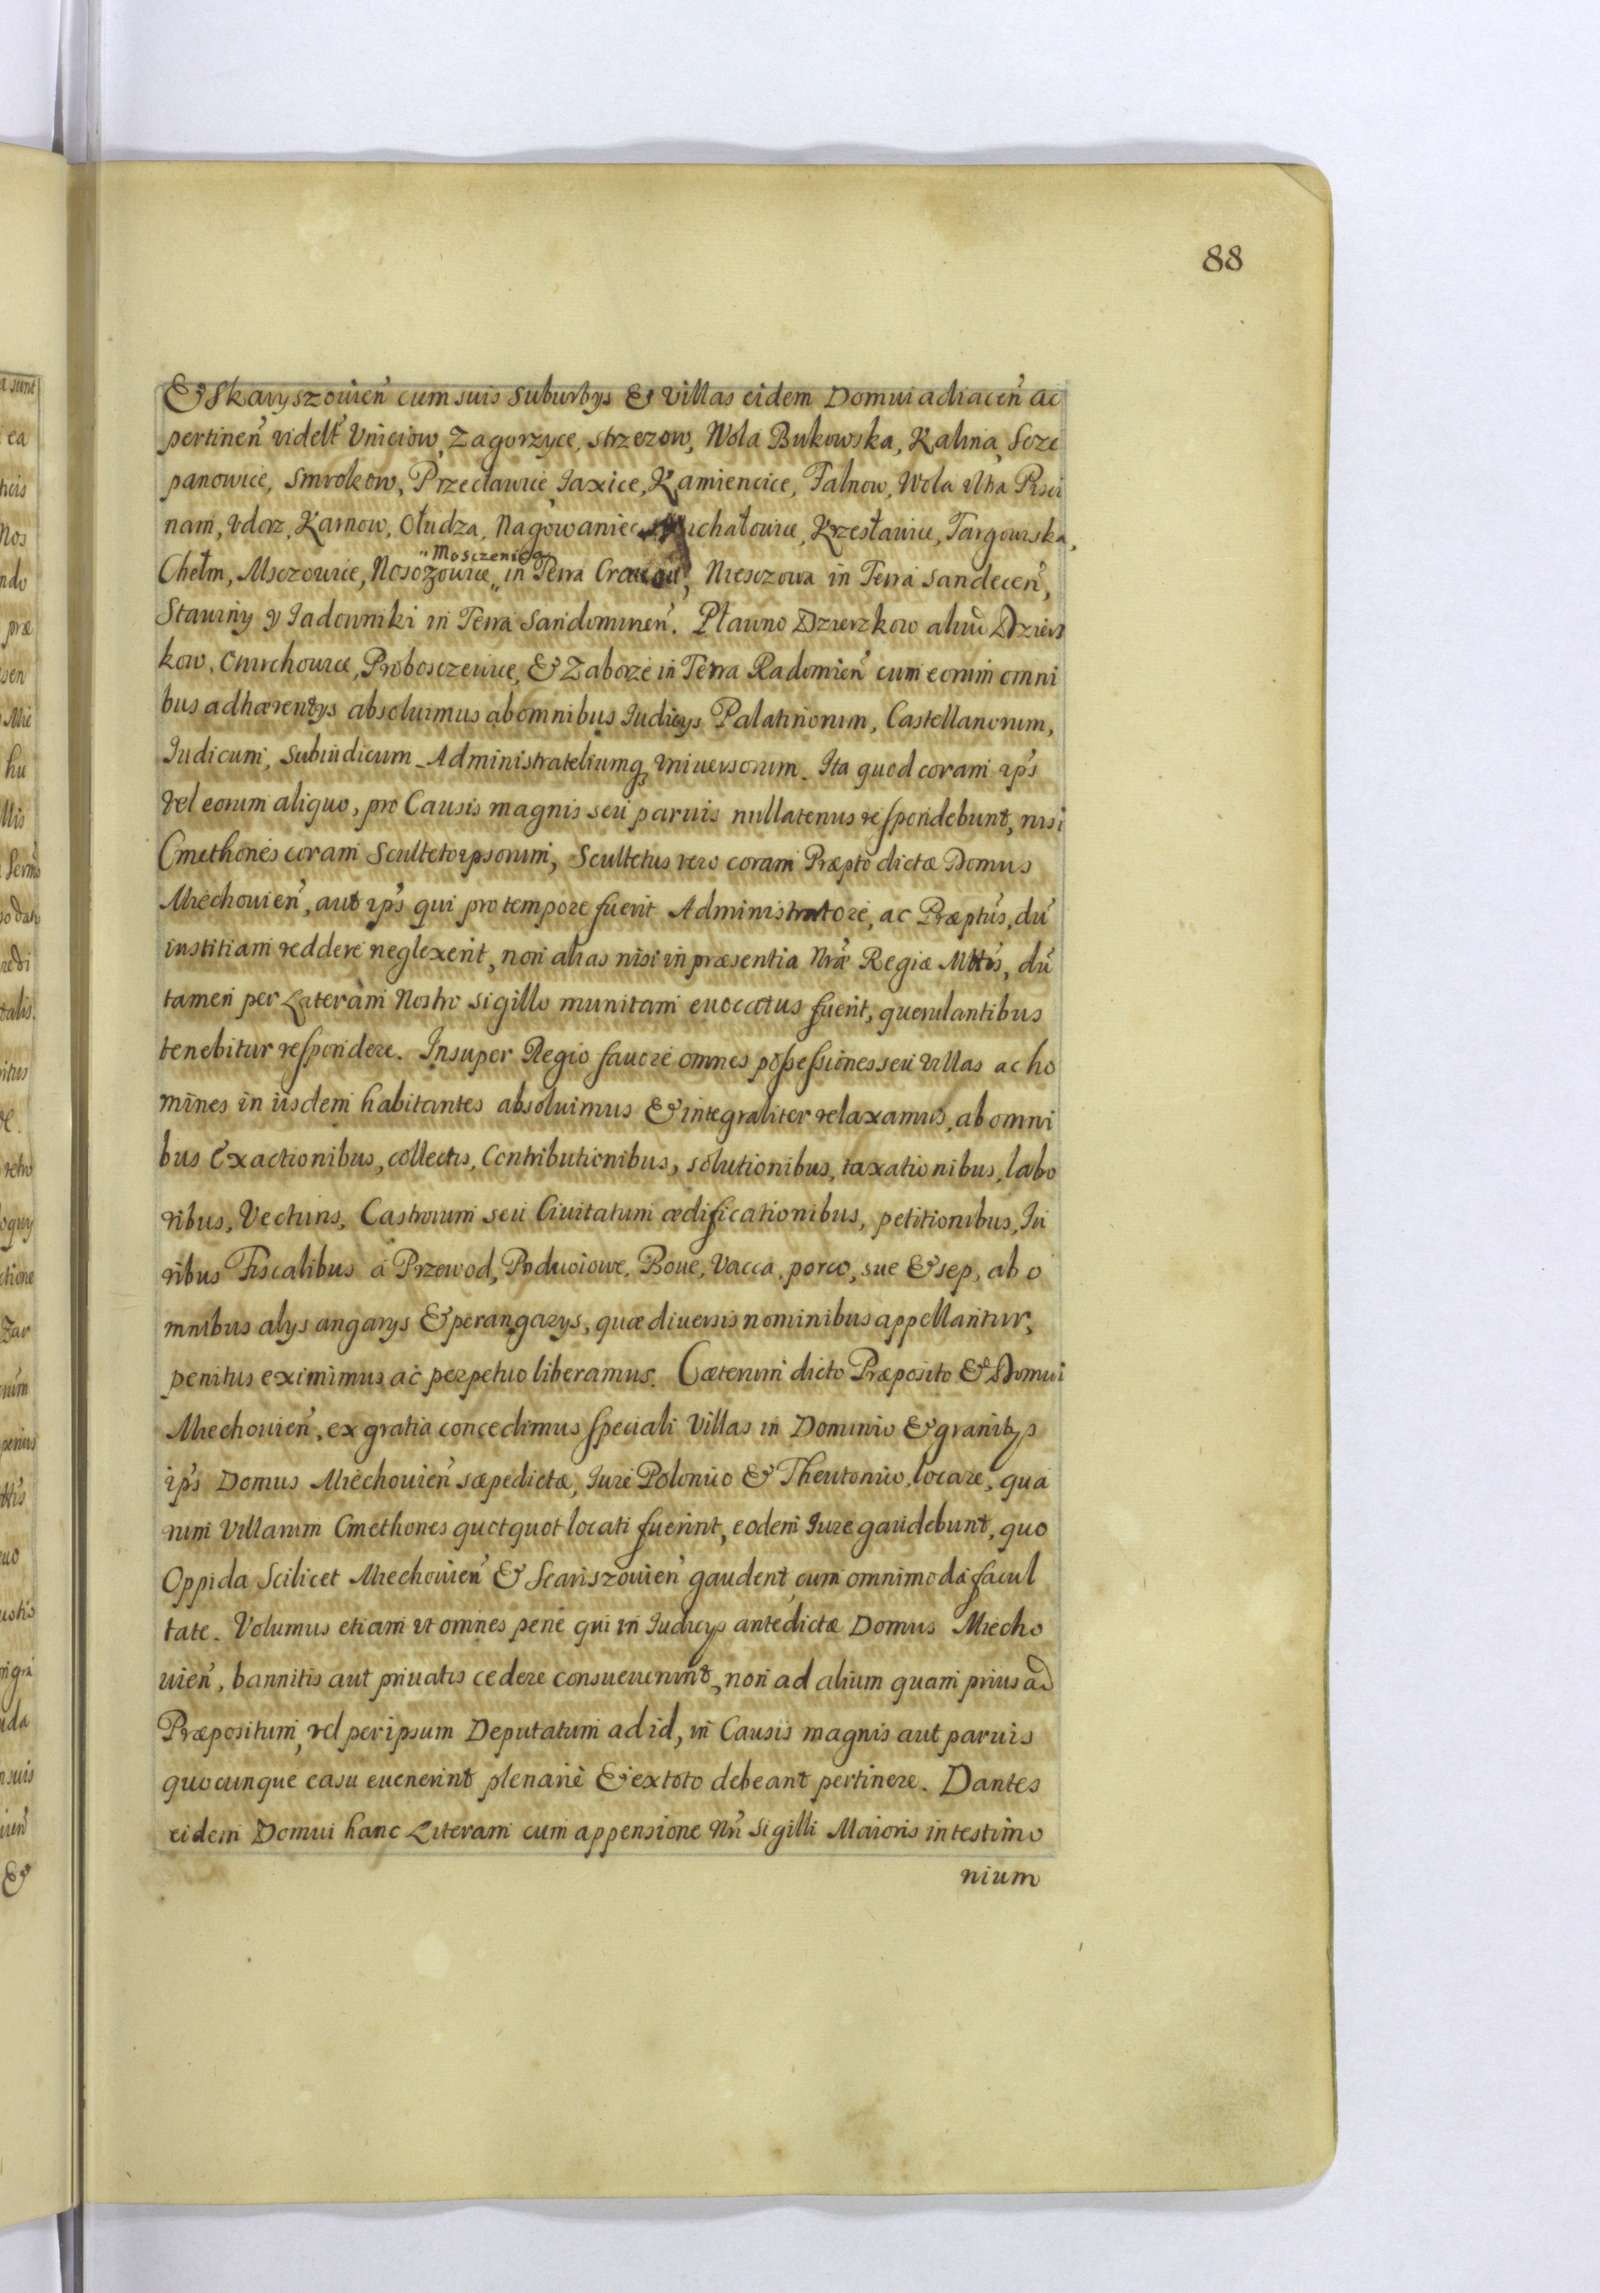 88
Et Skaryszowien̄ cum suis suburbys Et Villas eidem Domui adiacen̄ ac
pertinen̄ videlt̄ Vniciow, Zagorzyce, strzezow, Wola Bukowska, Kalina, Scze
panowice, Smrokow, Przecławice, Jaxice, Kamiencice, Falnow, Wola vltra Pisci
nam, vdorz, Karnow, Ołudza, Nagowaniec, Michałowice, Krzesławice, Targowiska,
„Mosczenica
Chełm, Msczowice, Nosozowice „ in Terra Cracou̅, Niesczowa in Terra Sandecen̄,
Stawiny y Jadowniki in Terra Sandomirien̄. Pławno Dzierzkow aliud Dzierz
kow, Omichowice, Probosczewice, Et Zaborze in Terra Radomien̄ cum eorum omni
bus adhærentys absoluimus ab omnibus Iudicys Palatinorum, Castellanorum,
Iudicum, Subiudicum Administrateliumq vniuersorum. Ita quod coram ip̄s
vel eorum aliquo, pro Causis magnis seu paruis nullatenus respondebunt, nisi
Cmethones coram Sculteto ipsorum, Scultetus vero coram Præpto dictæ Domus
Miechouien̄, aut ip̄s qui pro tempore fuerit Administratore, ac Præptus, du̅
iustitiam reddere neglexerit, non alias nisi in præsentia Nr̄æ Regiæ Mttis, du̅
tamen per Literam Nostro sigillo munitam euocatus fuerit, querulantibus
tenebitur respondere. Insuper Regio fauore omnes possessiones seu villas ac ho
mines in iisdem habitantes absoluimus Et integraliter relaxamus, ab omni
bus exactionibus, collectis, Contributionibus, solutionibus, taxationibus, labo
ribus, Vecturis, Castrorum seu Ciuitatum ædificationibus, petitionibus, Iu
ribus Fiscalibus a Przewod, Poduoiowe, Boue, Vacca, porco, sue Et sep, ab o
mnibus alys angarys Et perangarys, quæ diuersis nominibus appellantur,
penitus eximimus ac perpetuo liberamus. Cæterum dicto Præposito Et Domui
Miechouien̄, ex gratia concedimus speciali Villas in Dominio Et granitys
ip̄s Domus Miechouien̄ sæpedictæ, Iure Polonico Et Theutonico, locare, qua
rum Villarum Cmethones quotquot locati fuerint, eodem Iure gaudebunt, quo
Oppida Scilicet Miechouien̄ Et Scariszouien̄ gaudent cum omnimoda facul
tate. Volumus etiam vt omnes penè qui in Iudicys antedictæ Domus Miecho
uien̄, bannitis aut priuatis cedere consueuerunt, non ad alium quam prius ad
Præpositum, vel per ipsum Deputatum ad id, in Causis magnis aut paruis
quocunque casu euenerint plenariè Et ex toto debeant pertinere. Dantes
eidem Domui hanc Literam cum appensione Nr̄i Sigilli Maioris in testimo
nium